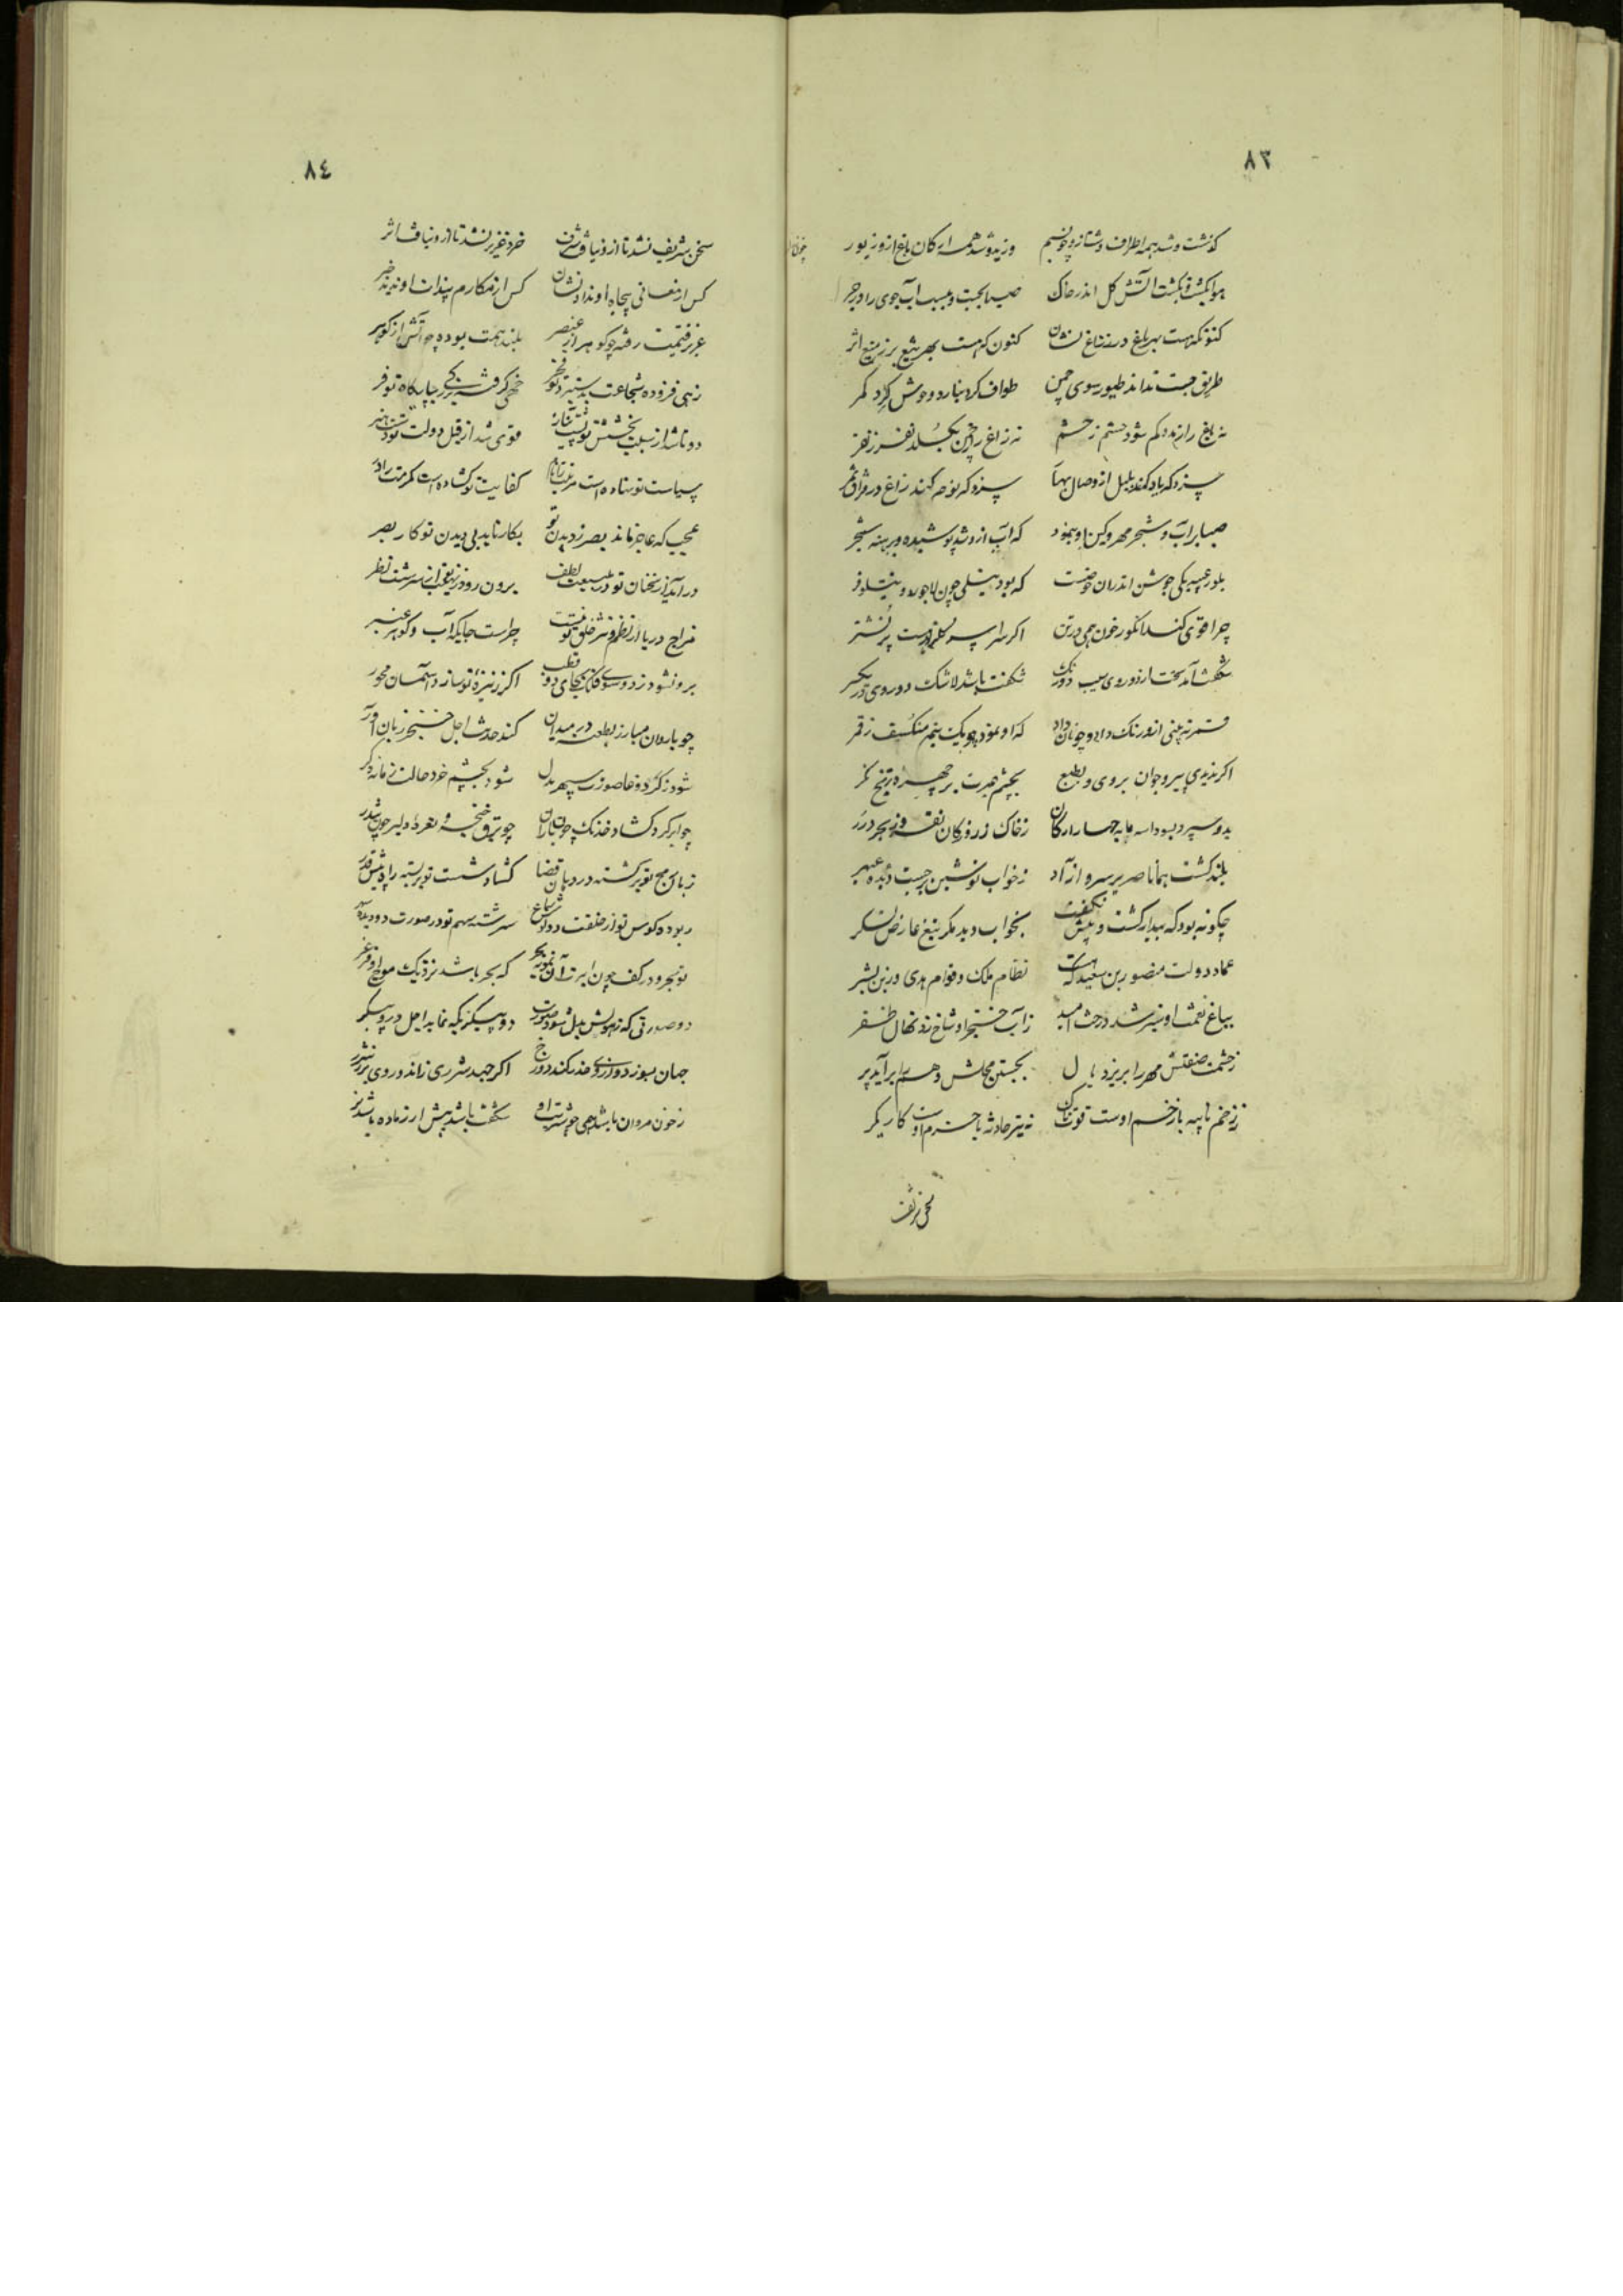 ٨٣
گذشت و شد همه اطراف دشت ازو چو نسیم وزید و شد همه ارکان باغ ازو زیور
هوا بکشت و بکشت آتش گل اندر خاک صبا بجست و ببست آب جوی را در جر
کنون که هست بهر باغ در ز زاغ نشان کنون که هست بهر تیغ بر ز میغ اثر
طریق جست نداند طیور سوی چمن طواف کرد نیارد وحوش گرد کمر
نه باغ را ز چشم نه زاغ را ز چمن بگسلد نفر ز نفر
سزد که یاد کند بلبل از وصال بهار سزد که نوحه کند زاغ در فراق ثمر
صبا بر آب و شجر مهر و کین او بنمود که آب ازو شد پوشیده و برهنه شجر
بلور چیست یکی جوشن اندران حوضست که بود نیلی چون لاجورد و نیلوفر
چرا قوی کند انگور خون همی در تن اگر سراسر پر نشتر
شگفت آمد سخت از دو روی سیب دو رنگ شگفت باشد لاشک دو روی در یکسر
ستم نه بینی ازو رنگ داد و چونان داد که او نمود چو یک نیمه منکسف ز قمر
اگر ندیدی پیر و جوان بروی و بطبع بچشم عبرت بر چهره ترنج نگر
بدو سپرد بسود اسه ما به چهار ارکان ز خاک زر و ز کان نقره و ز بحر درر
بلند گشت همانا صریر سرو آزاد ز خواب نوشین برجست دیده عبهر
چگونه بود که بیدار گشت و پیش نخفت بخواب دید مگر تیغ عارض لشکر
عماد دولت منصور بن سعید که هست نظام ملک و قوام هدی و زین بشر
بباغ نعمت او سبز شد درخت امید ز آب خنجر او شاخ زد نهال ظفر
ز حشمت صفتش مهر را بریزد بال بجستن مجلش وهم را برآید پر
ز زخم نایبه با زخم اوست قوت نه تیر حادثه با حزم اوست کاریگر
سخن شریف
٨٤
سخن شریف نشد تا ازو نیافت شرف خرد عزیز نشد تا ازو نیافت اثر
کس از معانی بیجاه او نداد نشان کس از مکارم بیذات او ندید خبر
عزیز قیمت رفته چو گوهر از عنصر بلند همت بوده چو آتش از گوهر
زهی فزوده شجاعت بسیرت تو فخر خهی گرفته بزرگی بجایگاه تو فر
دوتا شد از سبب بخشش تو پشت نیاز قوی شد از قبل دولت تو دست هنر
سیاست تو نهاده است مرتبت را نام کفایت تو گشاده است مکرمت را در
عجب که عاجز ماند بصر ز دیدن تو بکار ناید بی دیدن تو کار بصر
درآید از سخنان تو در طبیعت لطف برون رود ز نهیب تو از سرشت نظر
مزاج دریا از نظم و نثر خلق تو نیست چراست جایگه آب و گوهر و عنبر
برون شود ز دو سوی فلک بجای دو قطب اگر ز نیزه تو سازد آسمان محور
چو با روان مبارز بطعنه در میدان کند حدیث اجل خنجر زبان آور
شود ز گرد وغا صورت سپهر بدل شود بچشم خرد حالت زمانه دگر
چو ابر گرد گشاد خدنگ چون باران چو برق خنجر و نعره دلیر چون تندر
زبان رمح تو بر گشته در دهان قضا گشاد شست تو بر بسته راه پیش قدر
ربوده کوس تو از خلقت دو تاش سماع سرشته سهم تو در صورت دو دیده سهر
تو بحر و در کف چون ابرت آن نمونه بحر که بحر باشد نزدیک موج او فرغر
دو صورتی که ز هولش بدل شود صورت دو پیکری که نماید اجل در او پیکر
جهان بسوزد و از وی حذر کند دوزخ اگر جهد شرری زان دو روی پر ز شرر
ز خون مردان باشد همی خورش او را شگفت باشد بیش ار ز ماده باشد نر